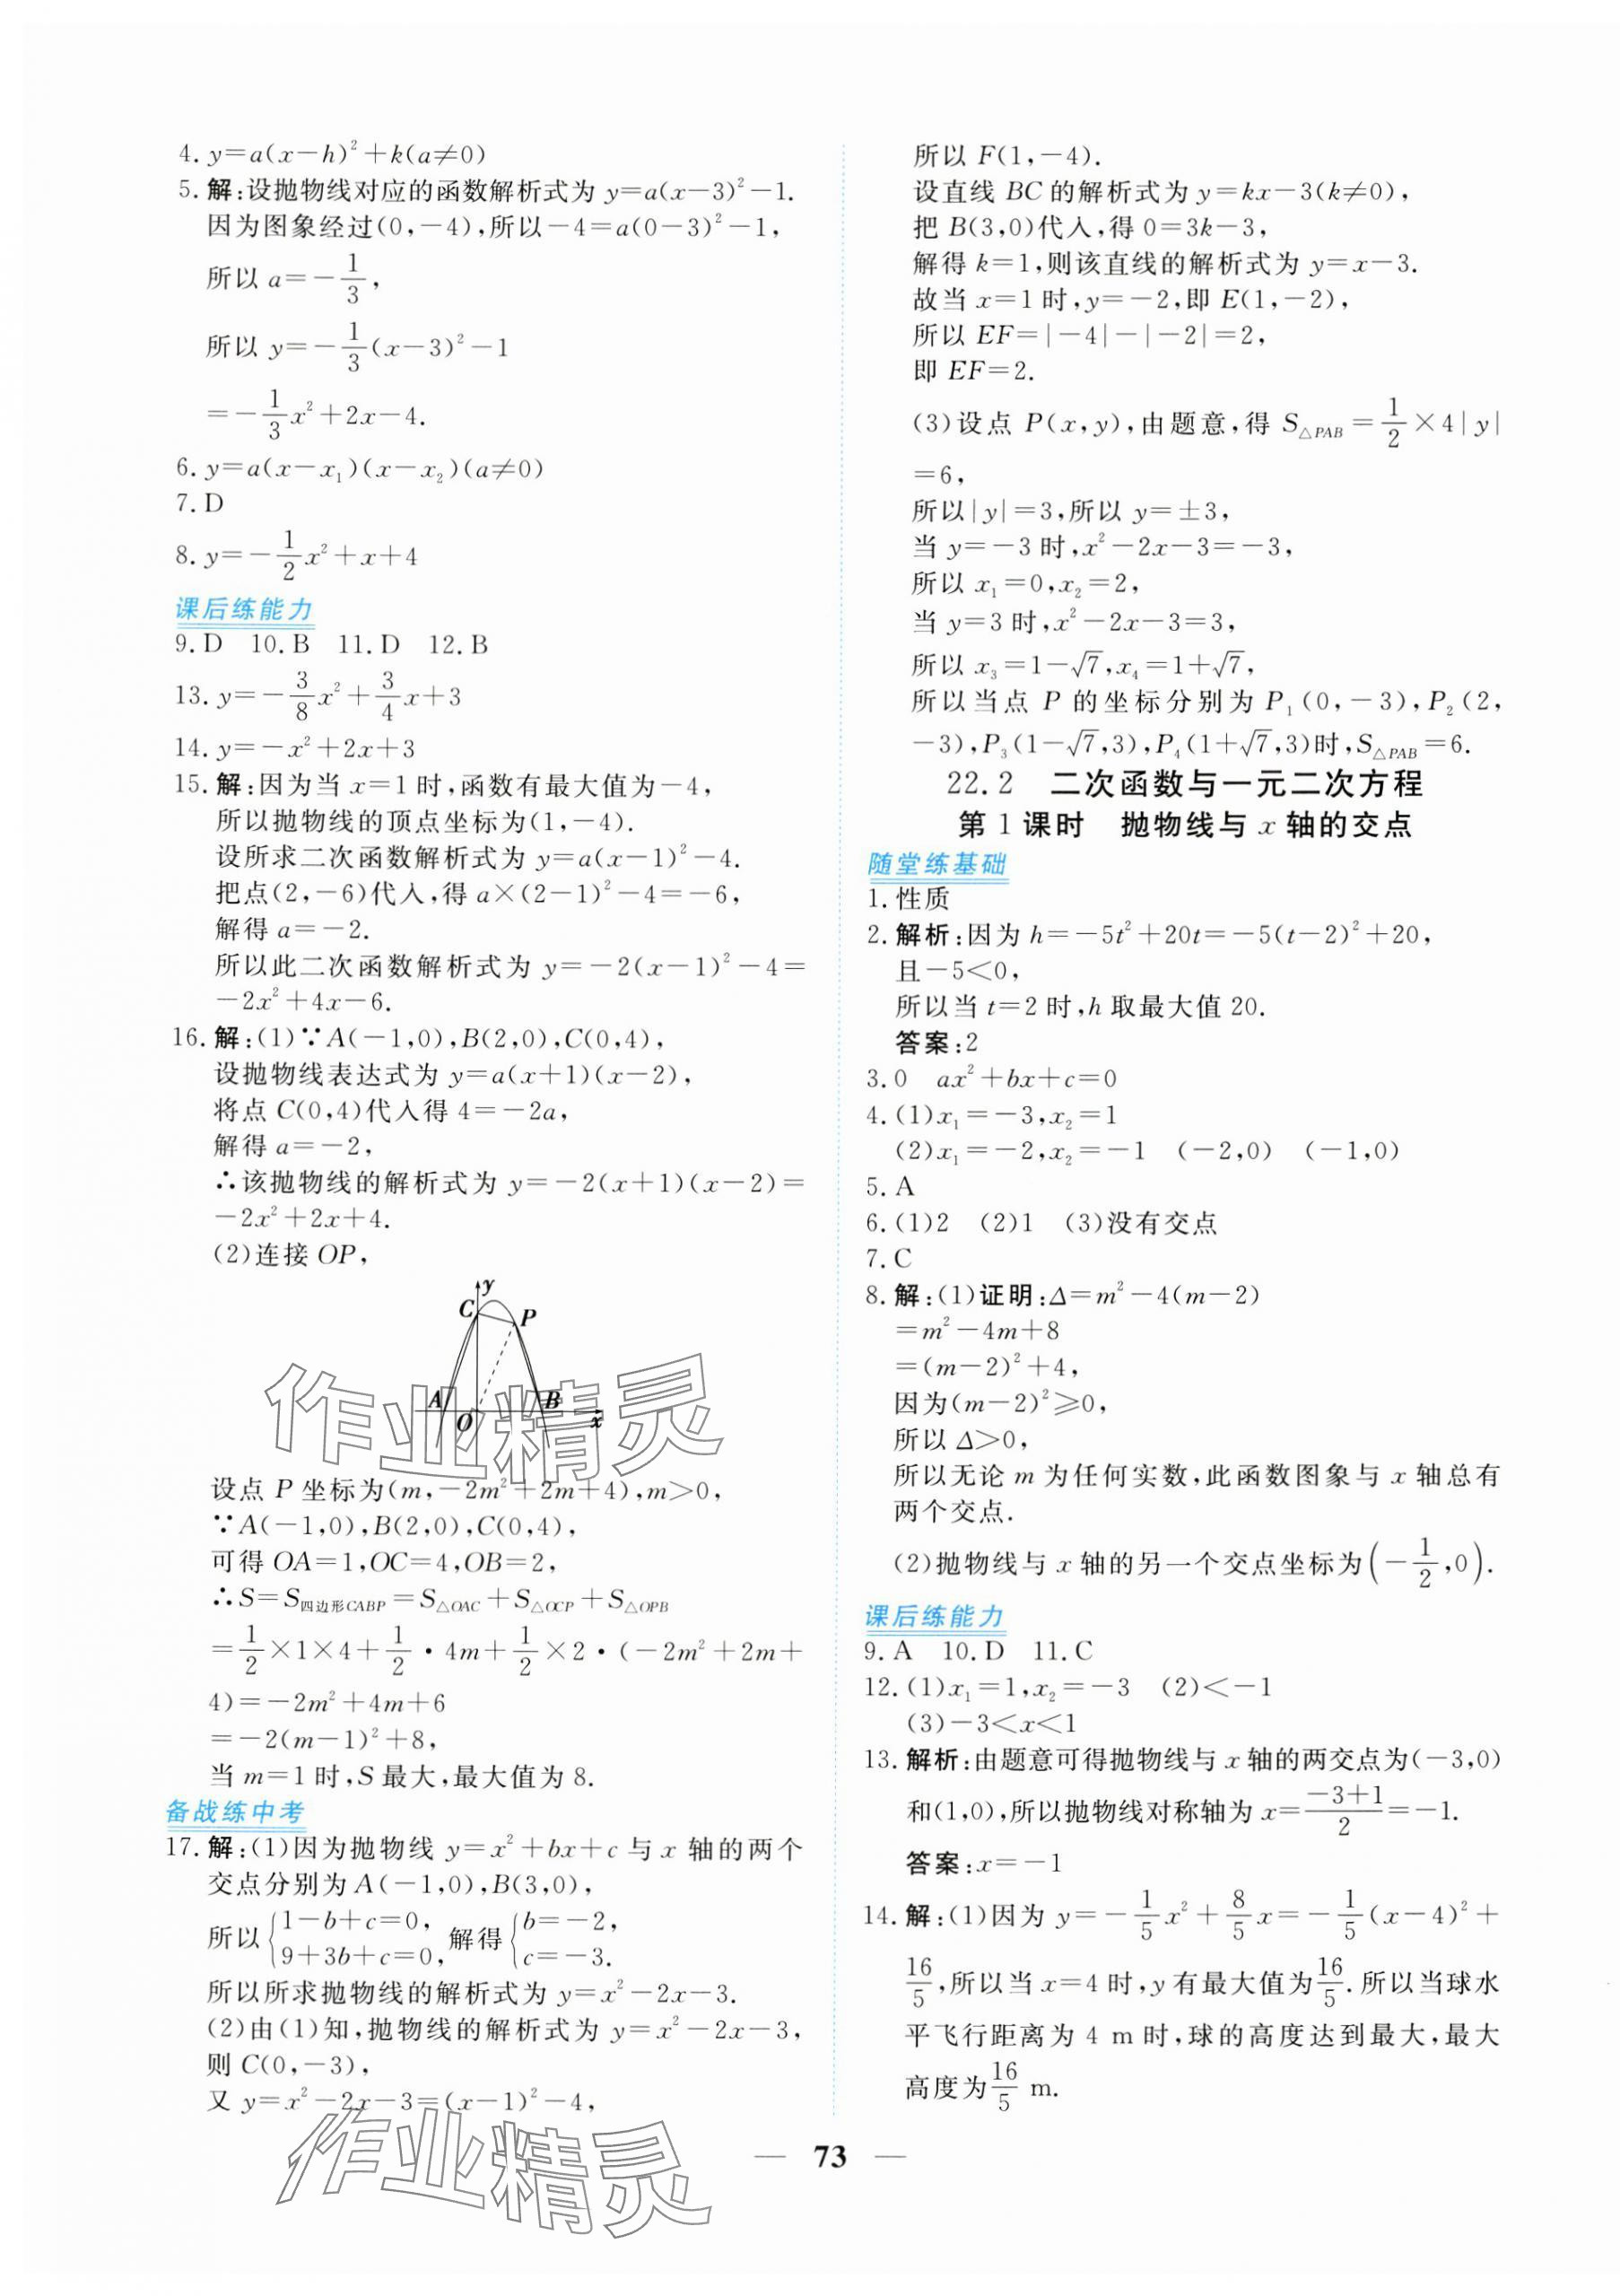 4. y=a(x-h)²+k(a≠0)
5. 解:设抛物线对应的函数解析式为 y=a(x-3)²-1.
因为图象经过(0,-4),所以-4=a(0-3)²-1,
所以 a=-1/3,
所以 y=-1/3(x-3)²-1
=-1/3x²+2x-4.
6. y=a(x-x₁)(x-x₂)(a≠0)
7. D
8. y=-1/2x²+x+4
课后练能力
9. D 10. B 11. D 12. B
13. y=-3/8x²+3/4x+3
14. y=-x²+2x+3
15. 解:因为当 x=1 时,函数有最大值为-4,
所以抛物线的顶点坐标为(1,-4).
设所求二次函数解析式为 y=a(x-1)²-4.
把点(2,-6)代入,得 a×(2-1)²-4=-6,
解得 a=-2.
所以此二次函数解析式为 y=-2(x-1)²-4=
-2x²+4x-6.
16. 解:(1)∵A(-1,0),B(2,0),C(0,4),
设抛物线表达式为 y=a(x+1)(x-2),
将点 C(0,4)代入得 4=-2a,
解得 a=-2,
∴该抛物线的解析式为 y=-2(x+1)(x-2)=
-2x²+2x+4.
(2)连接 OP,
y
C
P
A
O
B
x
作业精灵
设点 P 坐标为(m,-2m²+2m+4),m>0,
∵A(-1,0),B(2,0),C(0,4),
可得 OA=1,OC=4,OB=2,
∴S=S四边形CABP=S△OAC+S△OCP+S△OPB
=1/2×1×4+1/2·4m+1/2×2·(-2m²+2m+
4)=-2m²+4m+6
=-2(m-1)²+8,
当 m=1 时,S 最大,最大值为 8.
备战练中考
17. 解:(1)因为抛物线 y=x²+bx+c 与 x 轴的两个
交点分别为 A(-1,0),B(3,0),
所以{1-b+c=0, 9+3b+c=0, 解得{b=-2, c=-3.
所以所求抛物线的解析式为 y=x²-2x-3.
(2)由(1)知,抛物线的解析式为 y=x²-2x-3,
则 C(0,-3),
又 y=x²-2x-3=(x-1)²-4,
作业精灵
所以 F(1,-4).
设直线 BC 的解析式为 y=kx-3(k≠0),
把 B(3,0)代入,得 0=3k-3,
解得 k=1,则该直线的解析式为 y=x-3.
故当 x=1 时,y=-2,即 E(1,-2),
所以 EF=|-4|-|-2|=2,
即 EF=2.
(3)设点 P(x,y),由题意,得 S△PAB=1/2×4|y|
=6,
所以|y|=3,所以 y=±3,
当 y=-3 时,x²-2x-3=-3,
所以 x₁=0,x₂=2,
当 y=3 时,x²-2x-3=3,
所以 x₃=1-√7,x₄=1+√7,
所以当点 P 的坐标分别为 P₁(0,-3),P₂(2,
-3),P₃(1-√7,3),P₄(1+√7,3)时,S△PAB=6.
22.2 二次函数与一元二次方程
第 1 课时 抛物线与 x 轴的交点
随堂练基础
1. 性质
2. 解析:因为 h=-5t²+20t=-5(t-2)²+20,
且-5<0,
所以当 t=2 时,h 取最大值 20.
答案:2
3. 0 ax²+bx+c=0
4. (1)x₁=-3,x₂=1
(2)x₁=-2,x₂=-1 (-2,0) (-1,0)
5. A
6. (1)2 (2)1 (3)没有交点
7. C
8. 解:(1)证明:Δ=m²-4(m-2)
=m²-4m+8
=(m-2)²+4,
因为(m-2)²≥0,
所以 Δ>0,
所以无论 m 为任何实数,此函数图象与 x 轴总有
两个交点.
(2)抛物线与 x 轴的另一个交点坐标为(-1/2,0).
课后练能力
9. A 10. D 11. C
12. (1)x₁=1,x₂=-3 (2)<-1
(3)-3<x<1
13. 解析:由题意可得抛物线与 x 轴的两交点为(-3,0)
和(1,0),所以抛物线对称轴为 x=(-3+1)/2=-1.
答案:x=-1
14. 解:(1)因为 y=-1/5x²+8/5x=-1/5(x-4)²+
16/5,所以当 x=4 时,y 有最大值为16/5.所以当球水
平飞行距离为 4 m 时,球的高度达到最大,最大
高度为16/5 m.
— 73 —